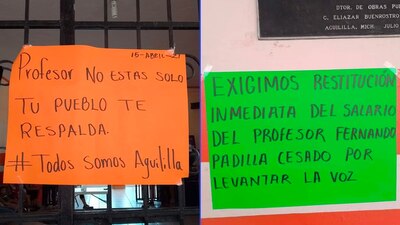 16-ABRIL-21
Profesor NO ESTAS SOLO
TU PUEBLO TE
RESPALDA.
#Todos somos Aguililla
DTOR. DE OBRAS PU
C. ELIAZAR BUENROSTRO
AGUILILLA, MICH. JULIO
EXIGIMOS RESTITUCIÓN
INMEDIATA DEL SALARIO
DEL PROFESOR FERNANDO
PADILLA CESADO POR
LEVANTAR LA VOZ